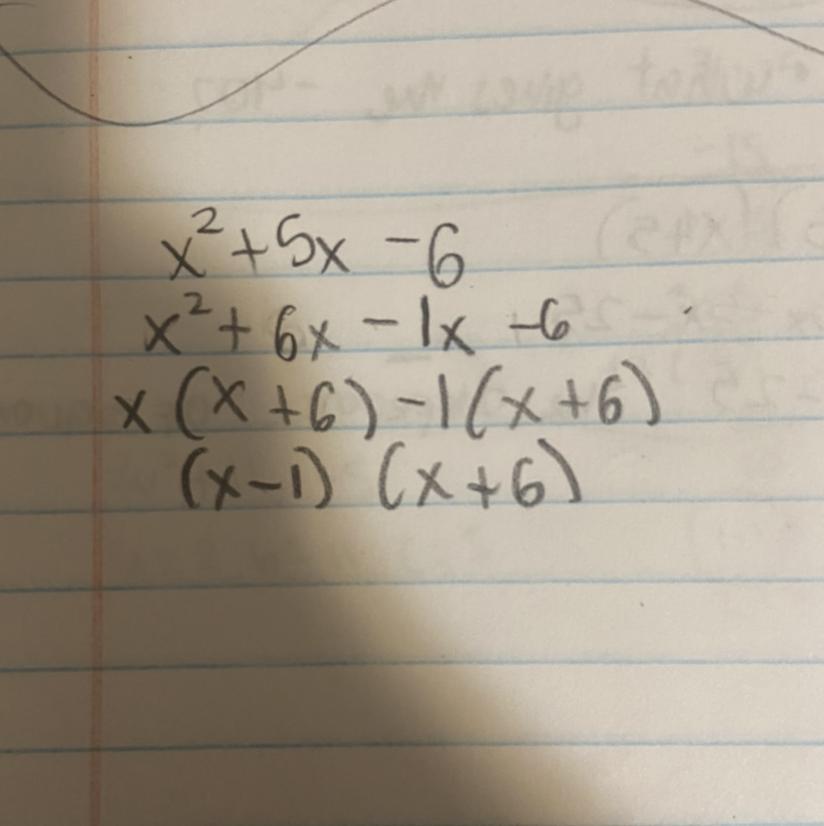 x² + 5x - 6
x² + 6x - 1x - 6
x (x + 6) - 1 (x + 6)
(x - 1) (x + 6)